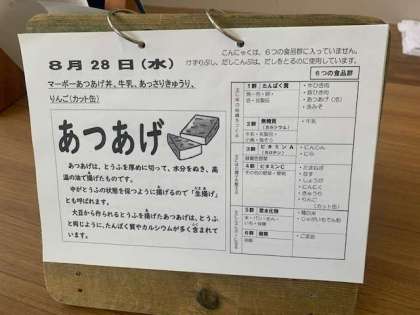 8月28日(水)
マーボーあつあげ丼、牛乳、あっさりきゅうり、
りんご(カット缶)
あつあげ
あつあげは、とうふを厚めに切って、水分をぬき、高
温の油で揚げたものです。
中がとうふの状態を保つように揚げるので「生揚げ」
とも呼ばれます。
大豆から作られるとうふを揚げたあつあげは、とうふ
と同じように、たんぱく質やカルシウムが多く含まれて
います。
こんにゃくは、6つの食品群に入っていません。
けずりぶし、だしこんぶは、だしをとるのに使用しています。
6つの食品群
1群 たんぱく質
・牛ひき肉
・豚ひき肉
・あつあげ(生)
・赤みそ
2群 無機質
(カルシウム)
・牛乳
3群 ビタミンA
(カロテン)
・にんじん
・にら
4群 ビタミンC
・たまねぎ
・しょうが
・にんにく
・きゅうり
・りんご
(カット缶)
5群 炭水化物
・じゃがいもでん粉
6群 脂質
・ごま油